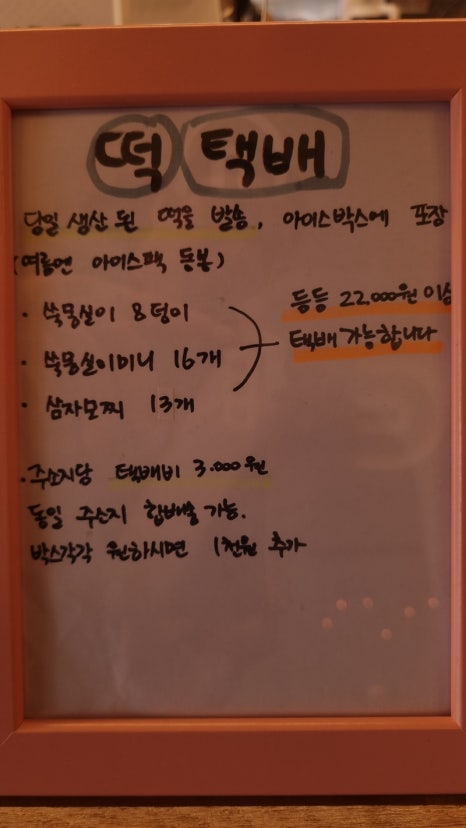 떡 택배
당일 생산 된 떡을 발송, 아이스박스에 포장
(여름엔 아이스팩 동봉)
· 쑥뭉실이 8덩이
· 쑥뭉실이미니 16개
· 삼자모찌 13개
등등 22.000원 이상
택배 가능합니다
· 주소지당 택배비 3.000원
동일 주소지 합배송 가능.
박스각각 원하시면 1천원 추가